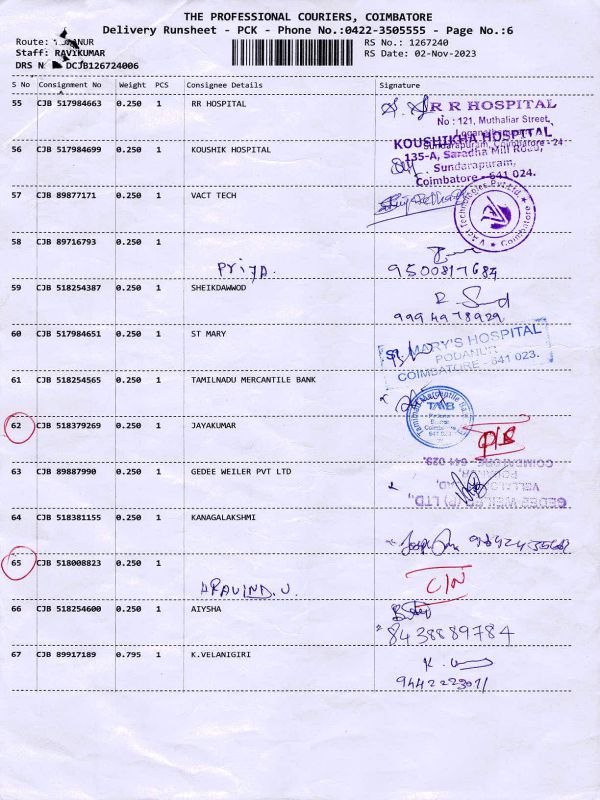 THE PROFESSIONAL COURIERS, COIMBATORE
Delivery Runsheet - PCK - Phone No.:0422-3505555 - Page No.:6
Route: ANUR
RS No.: 1267240
Staff: RAVIKUMAR
RS Date: 02-Nov-2023
DRS N DCJB126724006
S No Consignment No Weight PCS Consignee Details Signature
55 CJB 517984663 0.250 1 RR HOSPITAL
R R HOSPITAL
No : 121, Muthaliar Street,
56 CJB 517984699 0.250 1 KOUSHIK HOSPITAL
KOUSHIKHA HOSPITAL
135-A, Saradha Mill Road,
Sundarapuram,
Coimbatore - 641 024.
57 CJB 89877171 0.250 1 VACT TECH
58 CJB 89716793 0.250 1
Priya.
9500817684
59 CJB 518254387 0.250 1 SHEIKDAWWOD
9994978929
60 CJB 517984651 0.250 1 ST MARY
ST. MARY'S HOSPITAL
PODANUR
COIMBATORE - 641 023.
61 CJB 518254565 0.250 1 TAMILNADU MERCANTILE BANK
TMB
62 CJB 518379269 0.250 1 JAYAKUMAR
63 CJB 89887990 0.250 1 GEDEE WEILER PVT LTD
GEDEE WEILER (P) LTD.,
64 CJB 518381155 0.250 1 KANAGALAKSHMI
65 CJB 518008823 0.250 1
ARAVIND.U.
C/N
66 CJB 518254600 0.250 1 AIYSHA
8438889784
67 CJB 89917189 0.795 1 K.VELANIGIRI